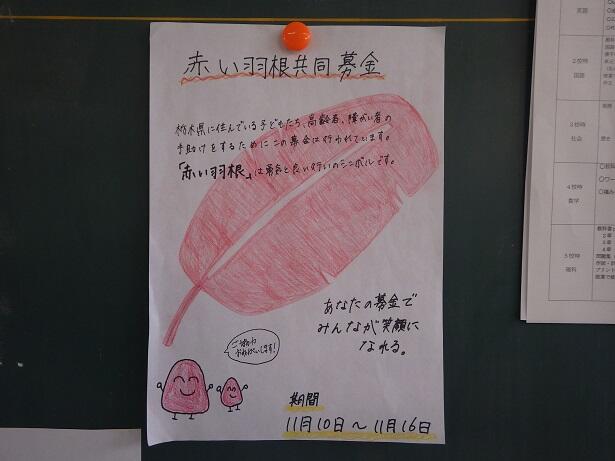 赤い羽根共同募金
栃木県に住んでいる子どもたち、高齢者、障がい者の
手助けをするためにこの募金は行われています。
「赤い羽根」は勇気と良い行いのシンボルです。
あなたの募金で
みんなが笑顔に
なれる。
ご協力
お願いします!
期間
11月10日~11月16日
英語
2校時
国語
3校時
社会
4校時
数学
5校時
理科